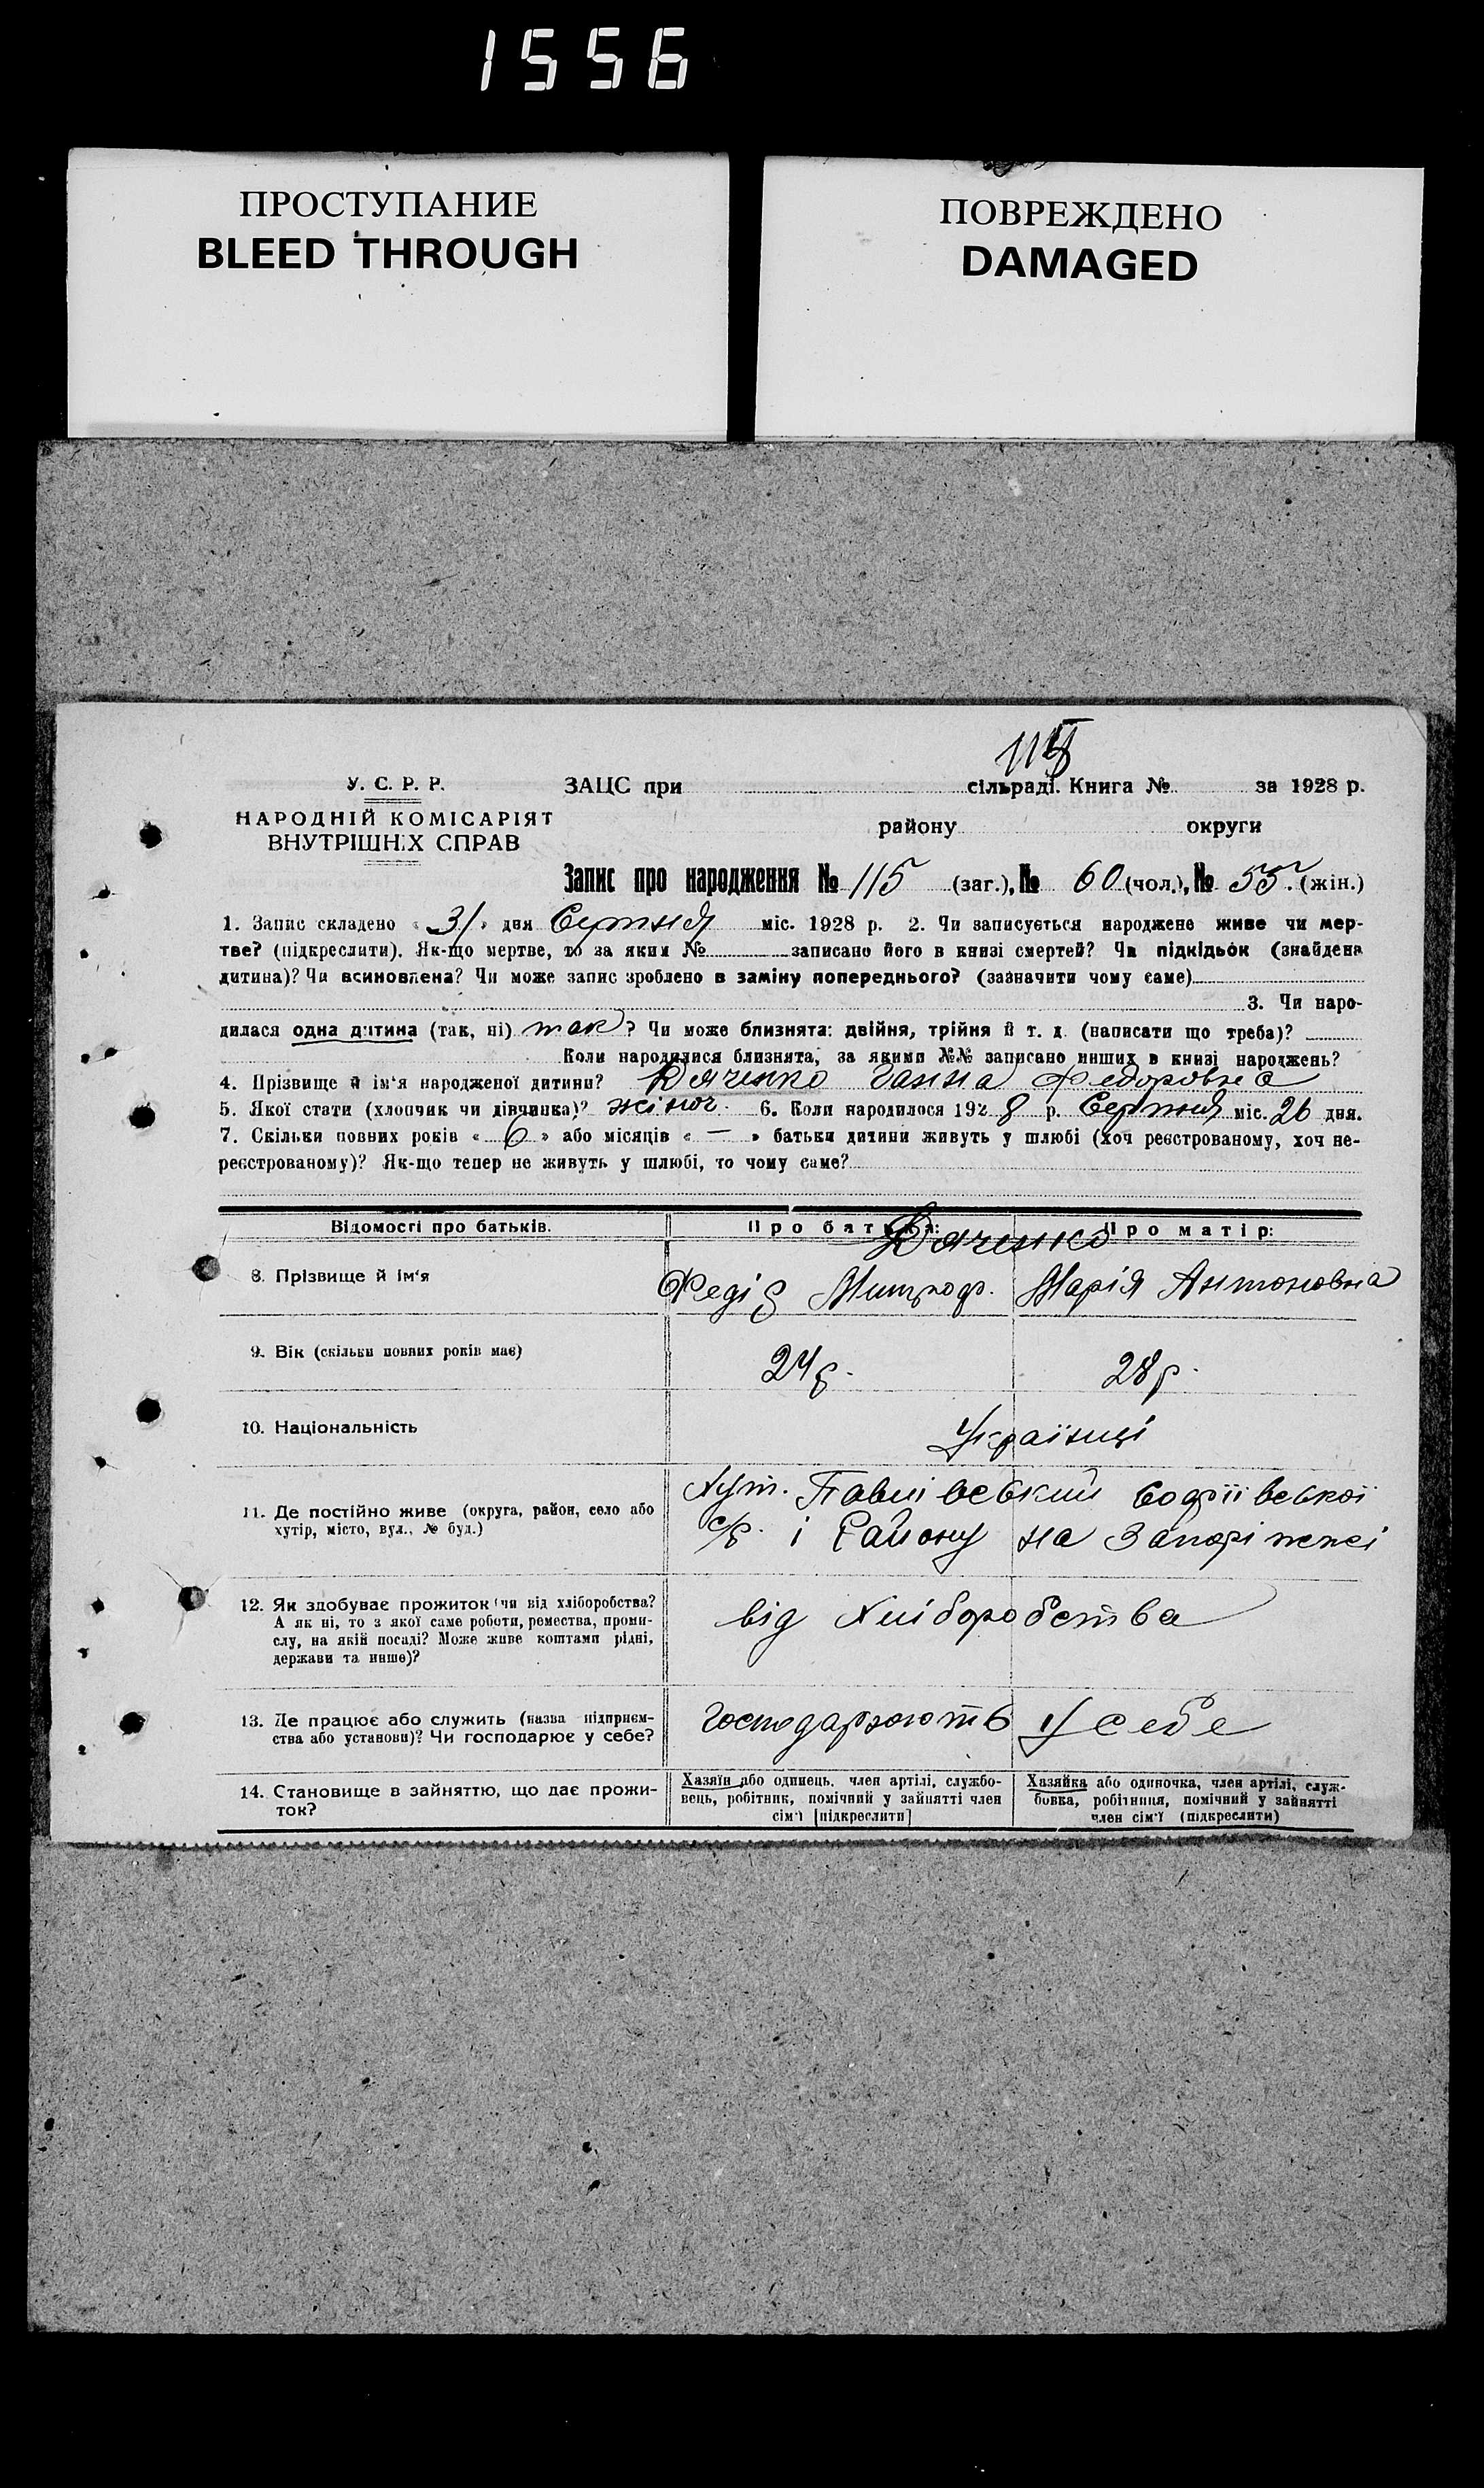 1556
ПРОСТУПАНИЕ
BLEED THROUGH
ПОВРЕЖДЕНО
DAMAGED
У. С. Р. Р.
НАРОДНІЙ КОМІСАРІЯТ
ВНУТРІШНІХ СПРАВ
ЗАЦС при сільраді. Книга № за 1928 р.
району округи
Запис про народження № 115 (заг.), № 60 (чол.), № 55. (жін.)
1. Запис складено « 31 » дня Серпня міс. 1928 р. 2. Чи записується народжене живе чи мер-
тве? (підкреслити). Як-що мертве, то за яким № записано його в книзі смертей? Чи підкідьок (знайдена
дитина)? Чи всиновлена? Чи може запис зроблено в заміну попереднього? (зазначити чому саме)
3. Чи наро-
дилася одна дитина (так, ні) так? Чи може близнята: двійня, трійня й т. д. (написати що треба)?
Коли народилися близнята, за якими №№ записано инших в книзі народжень?
4. Прізвище й ім'я народженої дитини? Дяченко Ганна Федоровна
5. Якої статі (хлопчик чи дівчинка)? жіноч. 6. Коли народилося 1928 р. Серпня міс. 26 дня.
7. Скільки повних років « 6 » або місяців « — » батьки дитини живуть у шлюбі (хоч реєстрованому, хоч не-
реєстрованому)? Як-що тепер не живуть у шлюбі, то чому саме?
Відомості про батьків.
Про батька:
Про матір:
Дяченко
8. Прізвище й ім'я
Федір Митроф.
Марія Антоновна
9. Вік (скільки повних років має)
24 р.
28 р.
10. Національність
Українці
11. Де постійно живе (округа, район, село або
хутір, місто, вул., № буд.)
Хут. Павлівський Софіївської
с/р. і Району на Запоріжжі
12. Як здобуває прожиток чи від хліборобства?
А як ні, то з якої саме роботи, ремества, проми-
слу, на якій посаді? Може живе коштами рідні,
держави та инше)?
від Хліборобства
13. Де працює або служить (назва підприєм-
ства або установи)? Чи господарює у себе?
Господарюють У себе
14. Становище в зайняттю, що дає прожи-
ток?
Хазяїн або одинець, член артілі, службо-
вець, робітник, помічний у зайнятті член
сім'ї [підкреслити]
Хазяйка або одиночка, член артілі, служ-
бовка, робітниця, помічний у зайнятті
член сім'ї (підкреслити)